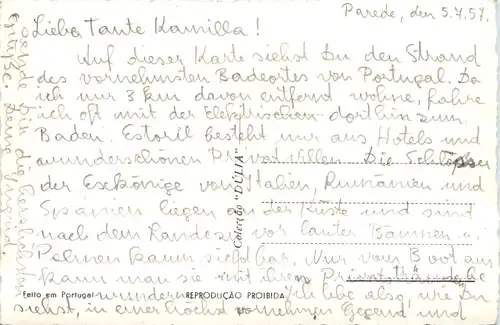 Parede, den 5.7.57.
Liebe Tante Kamilla!
Auf dieser Karte siehst Du den Strand
des vornehmsten Badeortes von Portugal. Da
ich nur 3 km davon entfernt wohne, fahre
ich oft mit der Elektrischen dorthin zum
Baden. Estoril besteht nur aus Hotels und
wunderschönen Privatvillen. Die Schlösser
der Exkönige von Italien, Rumänien und
Spanien liegen an der Küste und sind
nach dem Lande zu vor lauter Bäumen u.
Palmen kaum sichtbar. Nur vom Boot aus
kann man sie mit ihrem
bewundern. Ich lebe also, wie Du
siehst, in einer höchst vornehmen Gegend und
sende Dir die herzlichsten
Grüße. Deine
Colecção "DÚLIA"
Feito em Portugal
REPRODUÇÃO PROIBIDA